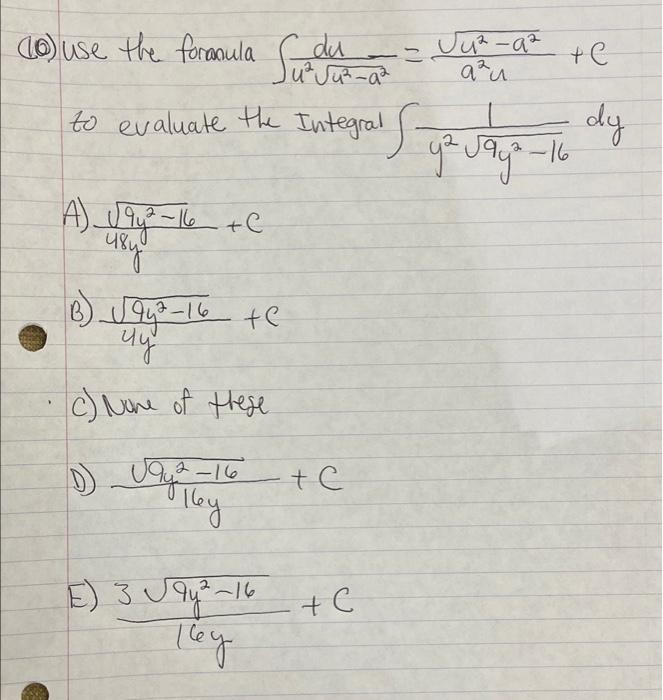 (10) use the formula ∫ du / u²√u²-a² = √u²-a² / a²u + C
to evaluate the Integral ∫ 1 / y²√9y²-16 dy
A) √9y²-16 / 48y + C
B) √9y²-16 / 4y + C
C) None of these
D) √9y²-16 / 16y + C
E) 3√9y²-16 / 16y + C